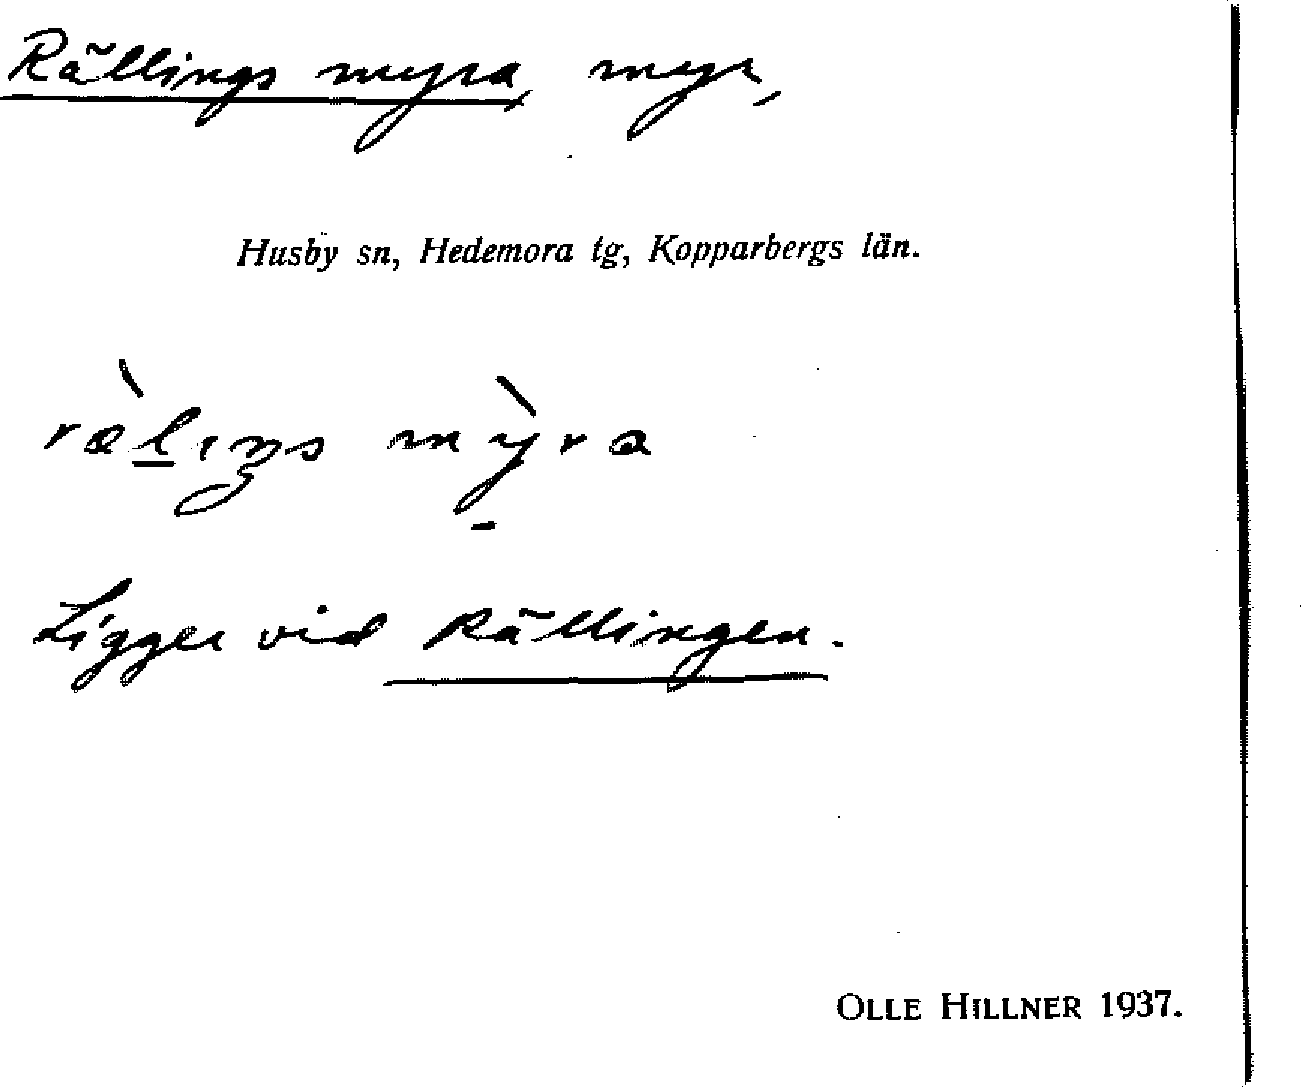 Rällings myra, myr,
Husby sn, Hedemora tg, Kopparbergs län.
ræ̀lıŋs mỳra
Ligger vid Rällingen.
OLLE HILLNER 1937.